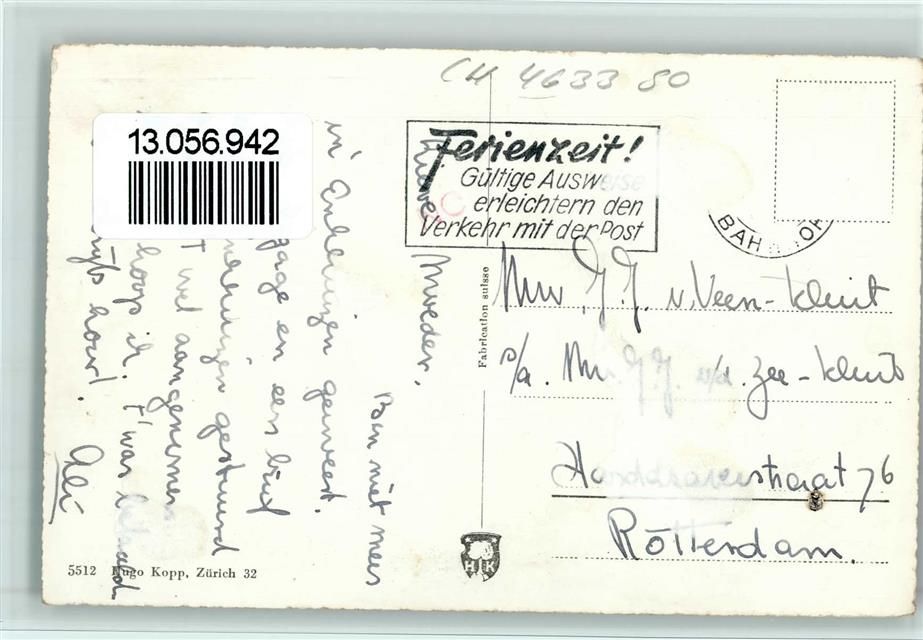 CH 4633 80
13.056.942
Ferienzeit!
Gültige Ausweise
erleichtern den
Verkehr mit der Post
BAHNHOF
Lieve
Moeder.
Ben niet meer
in geweest.
en een brief
gestuurd
wel aangenomen
hoop ik. t'was
hoor!
Ali
Fabrication suisse
Mw J.J. v. Veen-Kluit
p/a. J.J. v/d. Zee-Kluit
Harddraverstraat 76
Rotterdam.
HK
5512 Hugo Kopp, Zürich 32